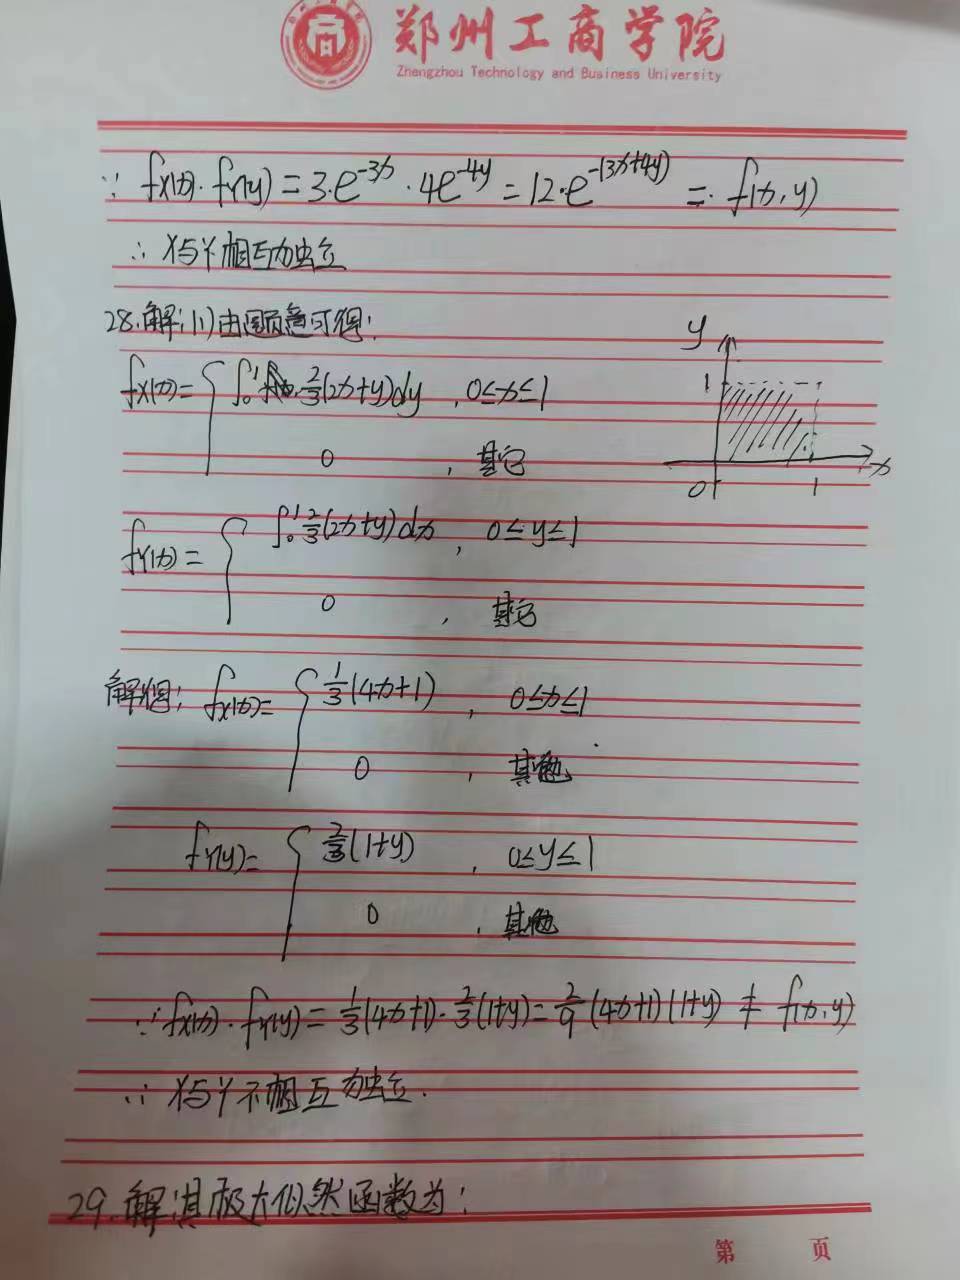 郑州工商学院
Zhengzhou Technology and Business University
∵ fX(x)·fY(y) = 3·e^{-3x}·4e^{-4y} = 12·e^{-(3x+4y)} = f(x,y)
∴ X与Y相互独立
28.解:(1)由题意可得:
fX(x)= { ∫₀¹ 2/3(2x+y)dy , 0≤x≤1
0 , 其它
y
1
0
1
x
fY(x)= { ∫₀¹ 2/3(2x+y)dx , 0≤y≤1
0 , 其它
解得: fX(x)= { 1/3(4x+1) , 0≤x≤1
0 , 其他
fY(y)= { 2/3(1+y) , 0≤y≤1
0 , 其他
∵ fX(x)·fY(y) = 1/3(4x+1)·2/3(1+y)= 2/9(4x+1)(1+y) ≠ f(x,y)
∴ X与Y不相互独立.
29.解:其极大似然函数为:
第 页